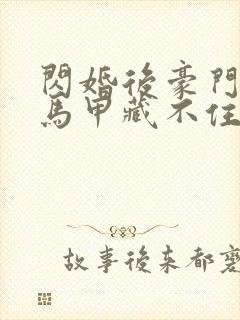 閃婚後豪門
馬甲藏不住
故事後來都